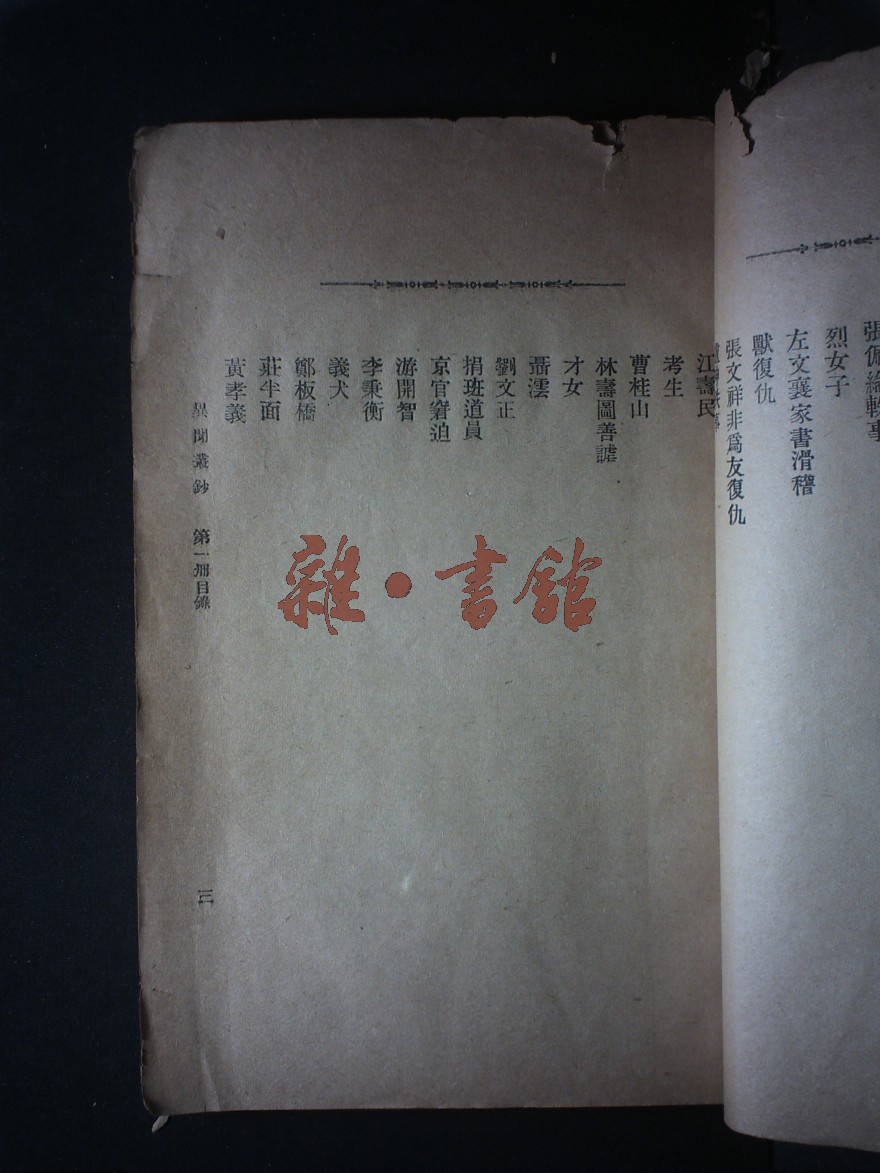 張佩綸軼事
烈女子
左文襄家書滑稽
獸復仇
張文祥非爲友復仇
江壽民
考生
曹桂山
林壽圖善謔
才女
聶澐
劉文正
捐班道員
京官窘迫
游開智
李秉衡
義犬
鄭板橋
莊半面
黃孝義
異聞叢鈔 第一册目錄 三
雜·書館